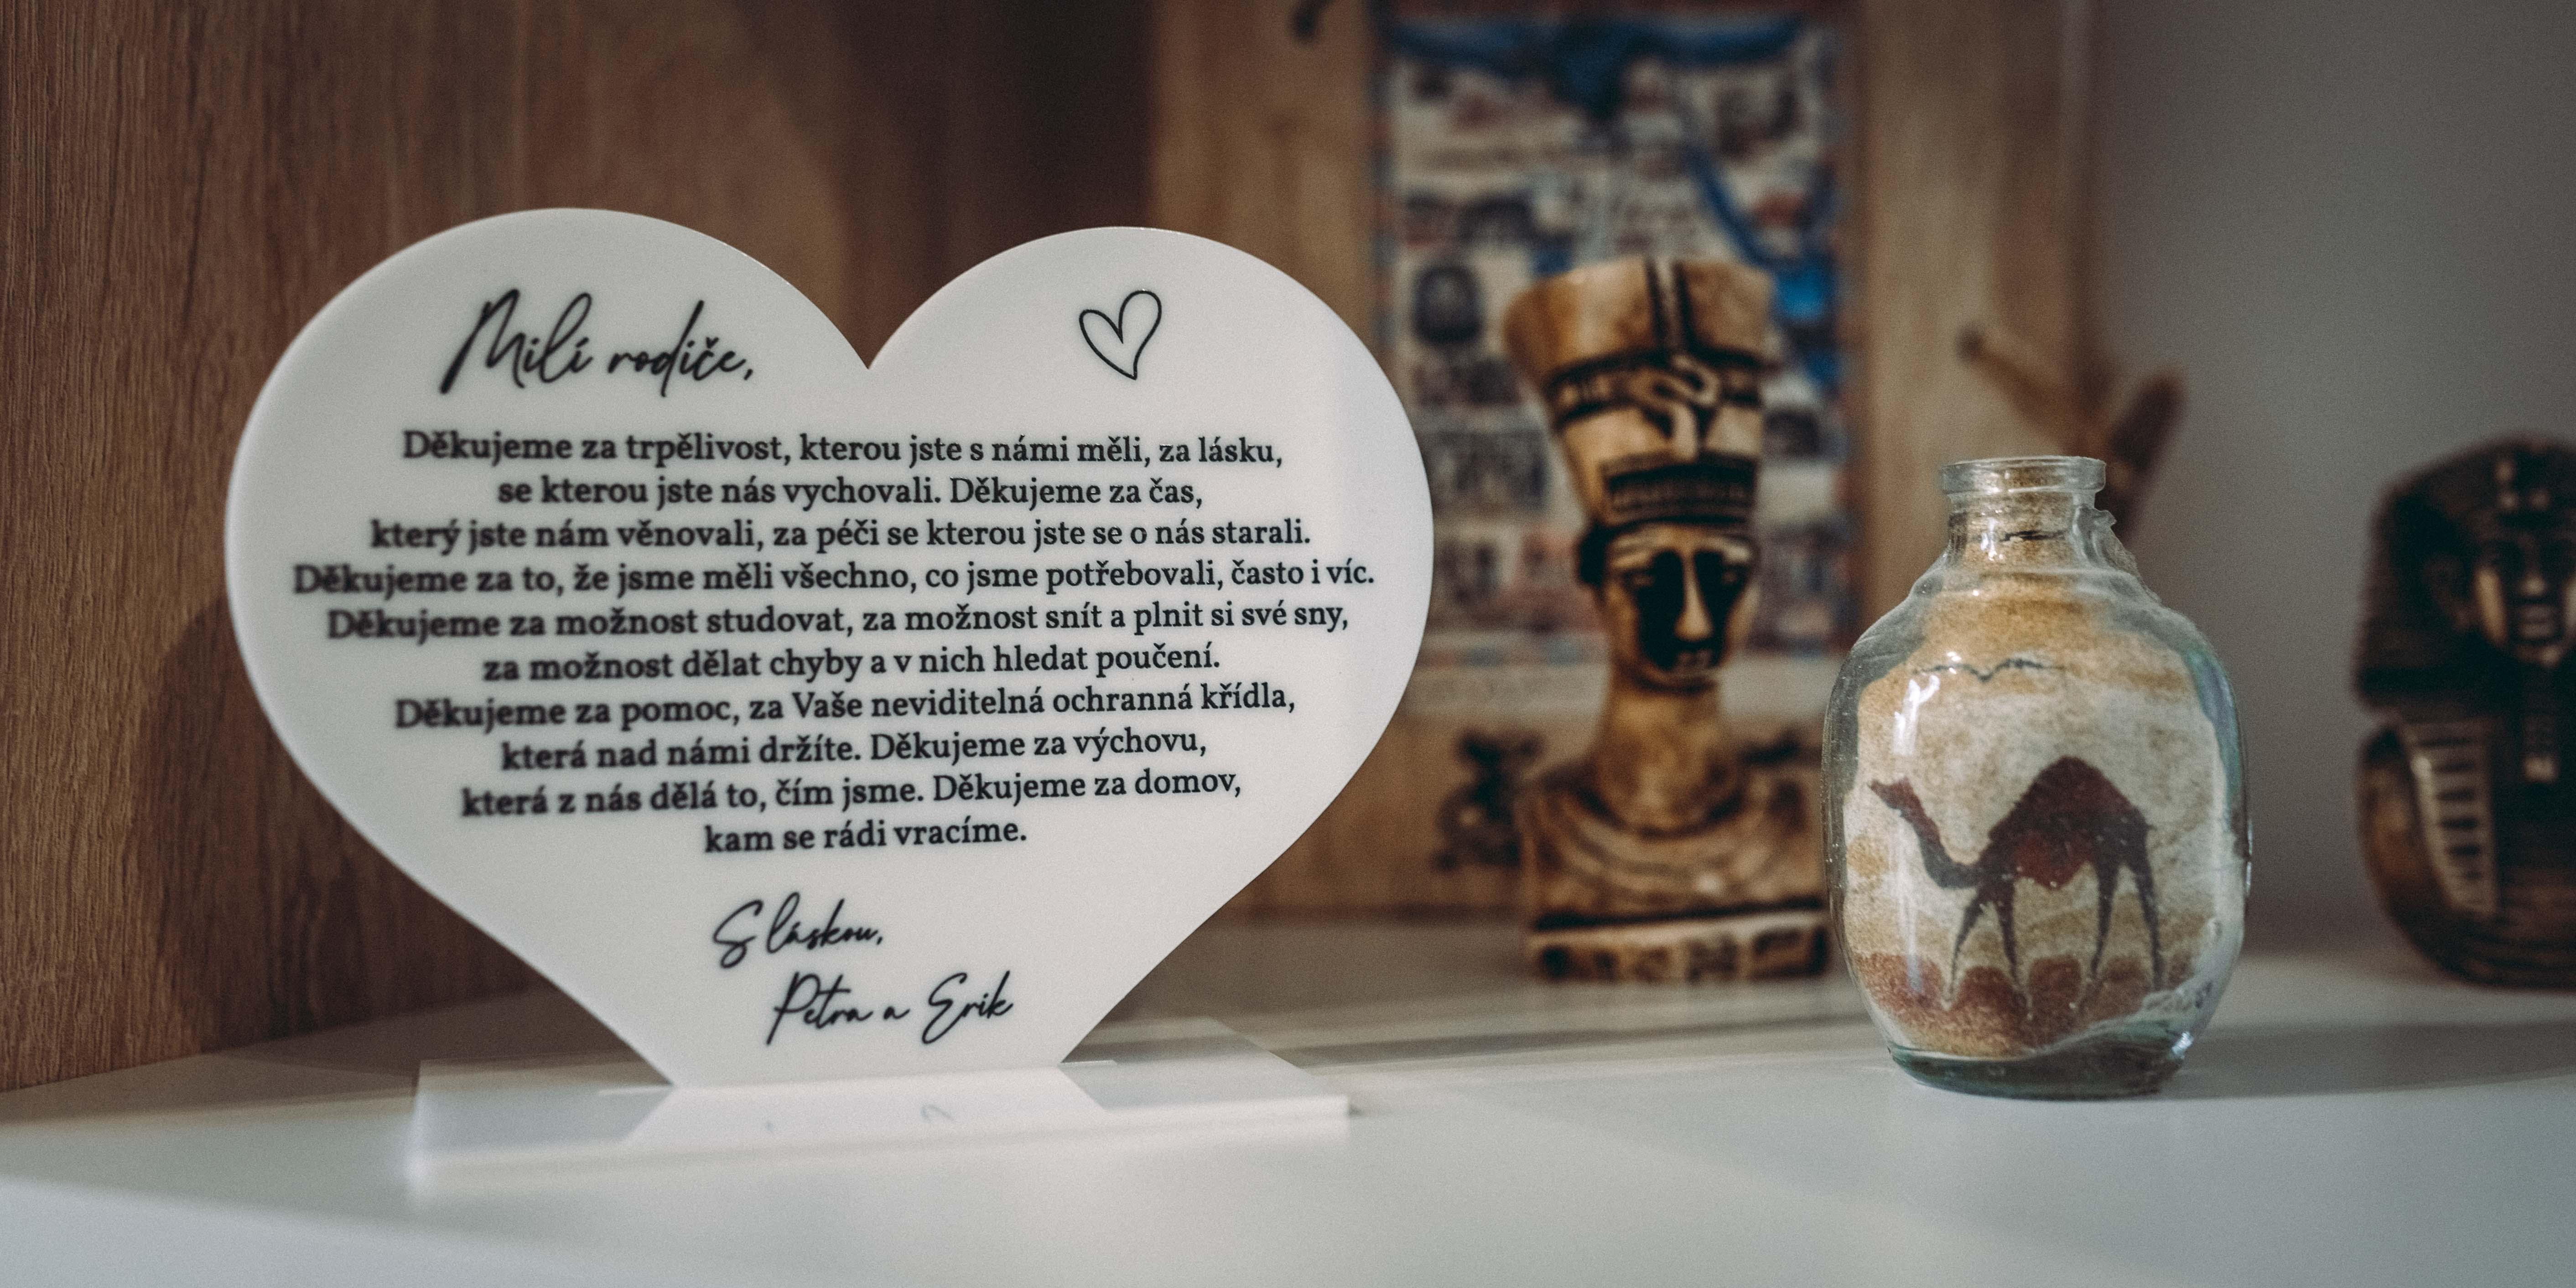 Milí rodiče,
Děkujeme za trpělivost, kterou jste s námi měli, za lásku,
se kterou jste nás vychovali. Děkujeme za čas,
který jste nám věnovali, za péči se kterou jste se o nás starali.
Děkujeme za to, že jsme měli všechno, co jsme potřebovali, často i víc.
Děkujeme za možnost studovat, za možnost snít a plnit si své sny,
za možnost dělat chyby a v nich hledat poučení.
Děkujeme za pomoc, za Vaše neviditelná ochranná křídla,
která nad námi držíte. Děkujeme za výchovu,
která z nás dělá to, čím jsme. Děkujeme za domov,
kam se rádi vracíme.
S láskou,
Petra a Erik